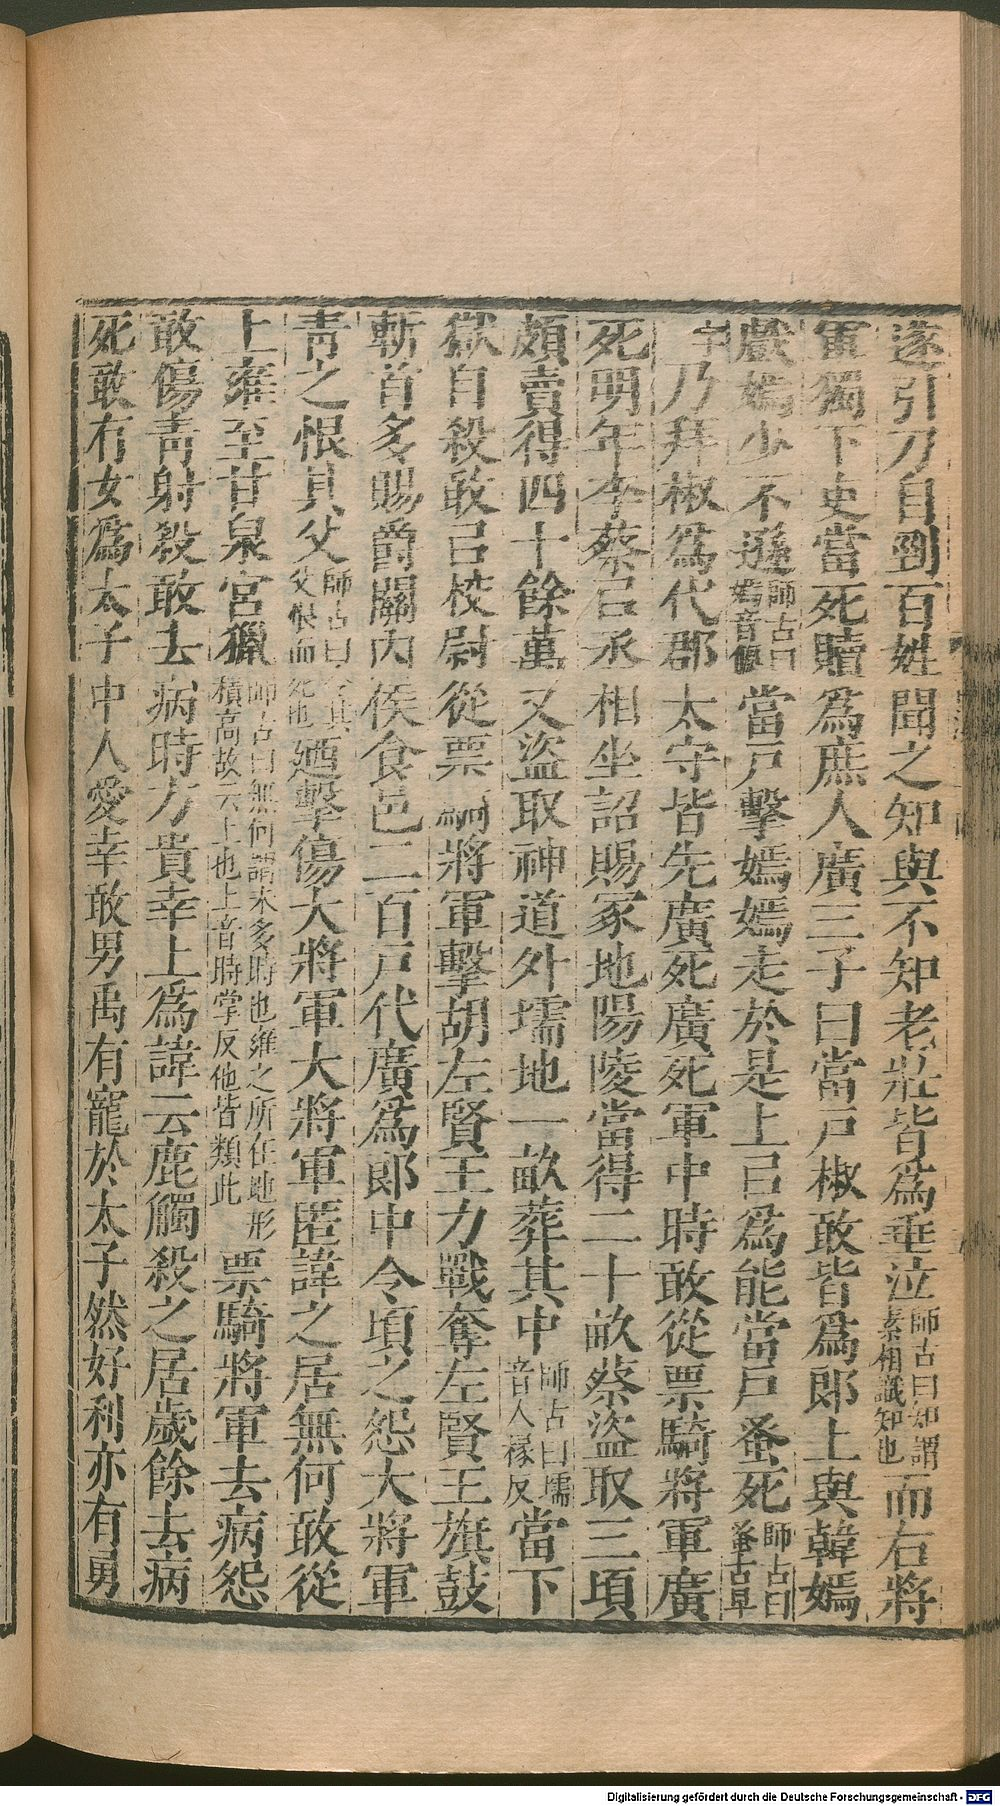 遂引刀自剄百姓聞之知與不知老壯皆爲垂泣師古曰知謂素相識知也而右將
軍獨下吏當死贖爲庶人廣三子曰當戸椒敢皆爲郎上與韓嫣
戲嫣少不遜師古曰嫣音偃當戸擊嫣嫣走於是上㠯爲能當戸蚤死師古曰蚤古早
字乃拜椒爲代郡太守皆先廣死廣死軍中時敢從票騎將軍廣
死明年李蔡㠯丞相坐詔賜冢地陽陵當得二十畝蔡盜取三頃
頗賣得四十餘萬又盜取神道外壖地一畝葬其中師古曰壖音人椽反當下
獄自殺敢㠯校尉從票騎將軍擊胡左賢王力戰奪左賢王旗鼓
斬首多賜爵關內侯食邑二百戸代廣爲郎中令頃之怨大將軍
青之恨其父師古曰令其父恨而死也廼擊傷大將軍大將軍匿諱之居無何敢從
上雍至甘泉宮獵師古曰無何謂未多時也雍之所在地形積高故云上也上音時掌反他皆類此票騎將軍去病怨
敢傷青射殺敢去病時方貴幸上爲諱云鹿觸殺之居歲餘去病
死敢有女爲太子中人愛幸敢男禹有寵於太子然好利亦有勇
Digitalisierung gefördert durch die Deutsche Forschungsgemeinschaft - DFG